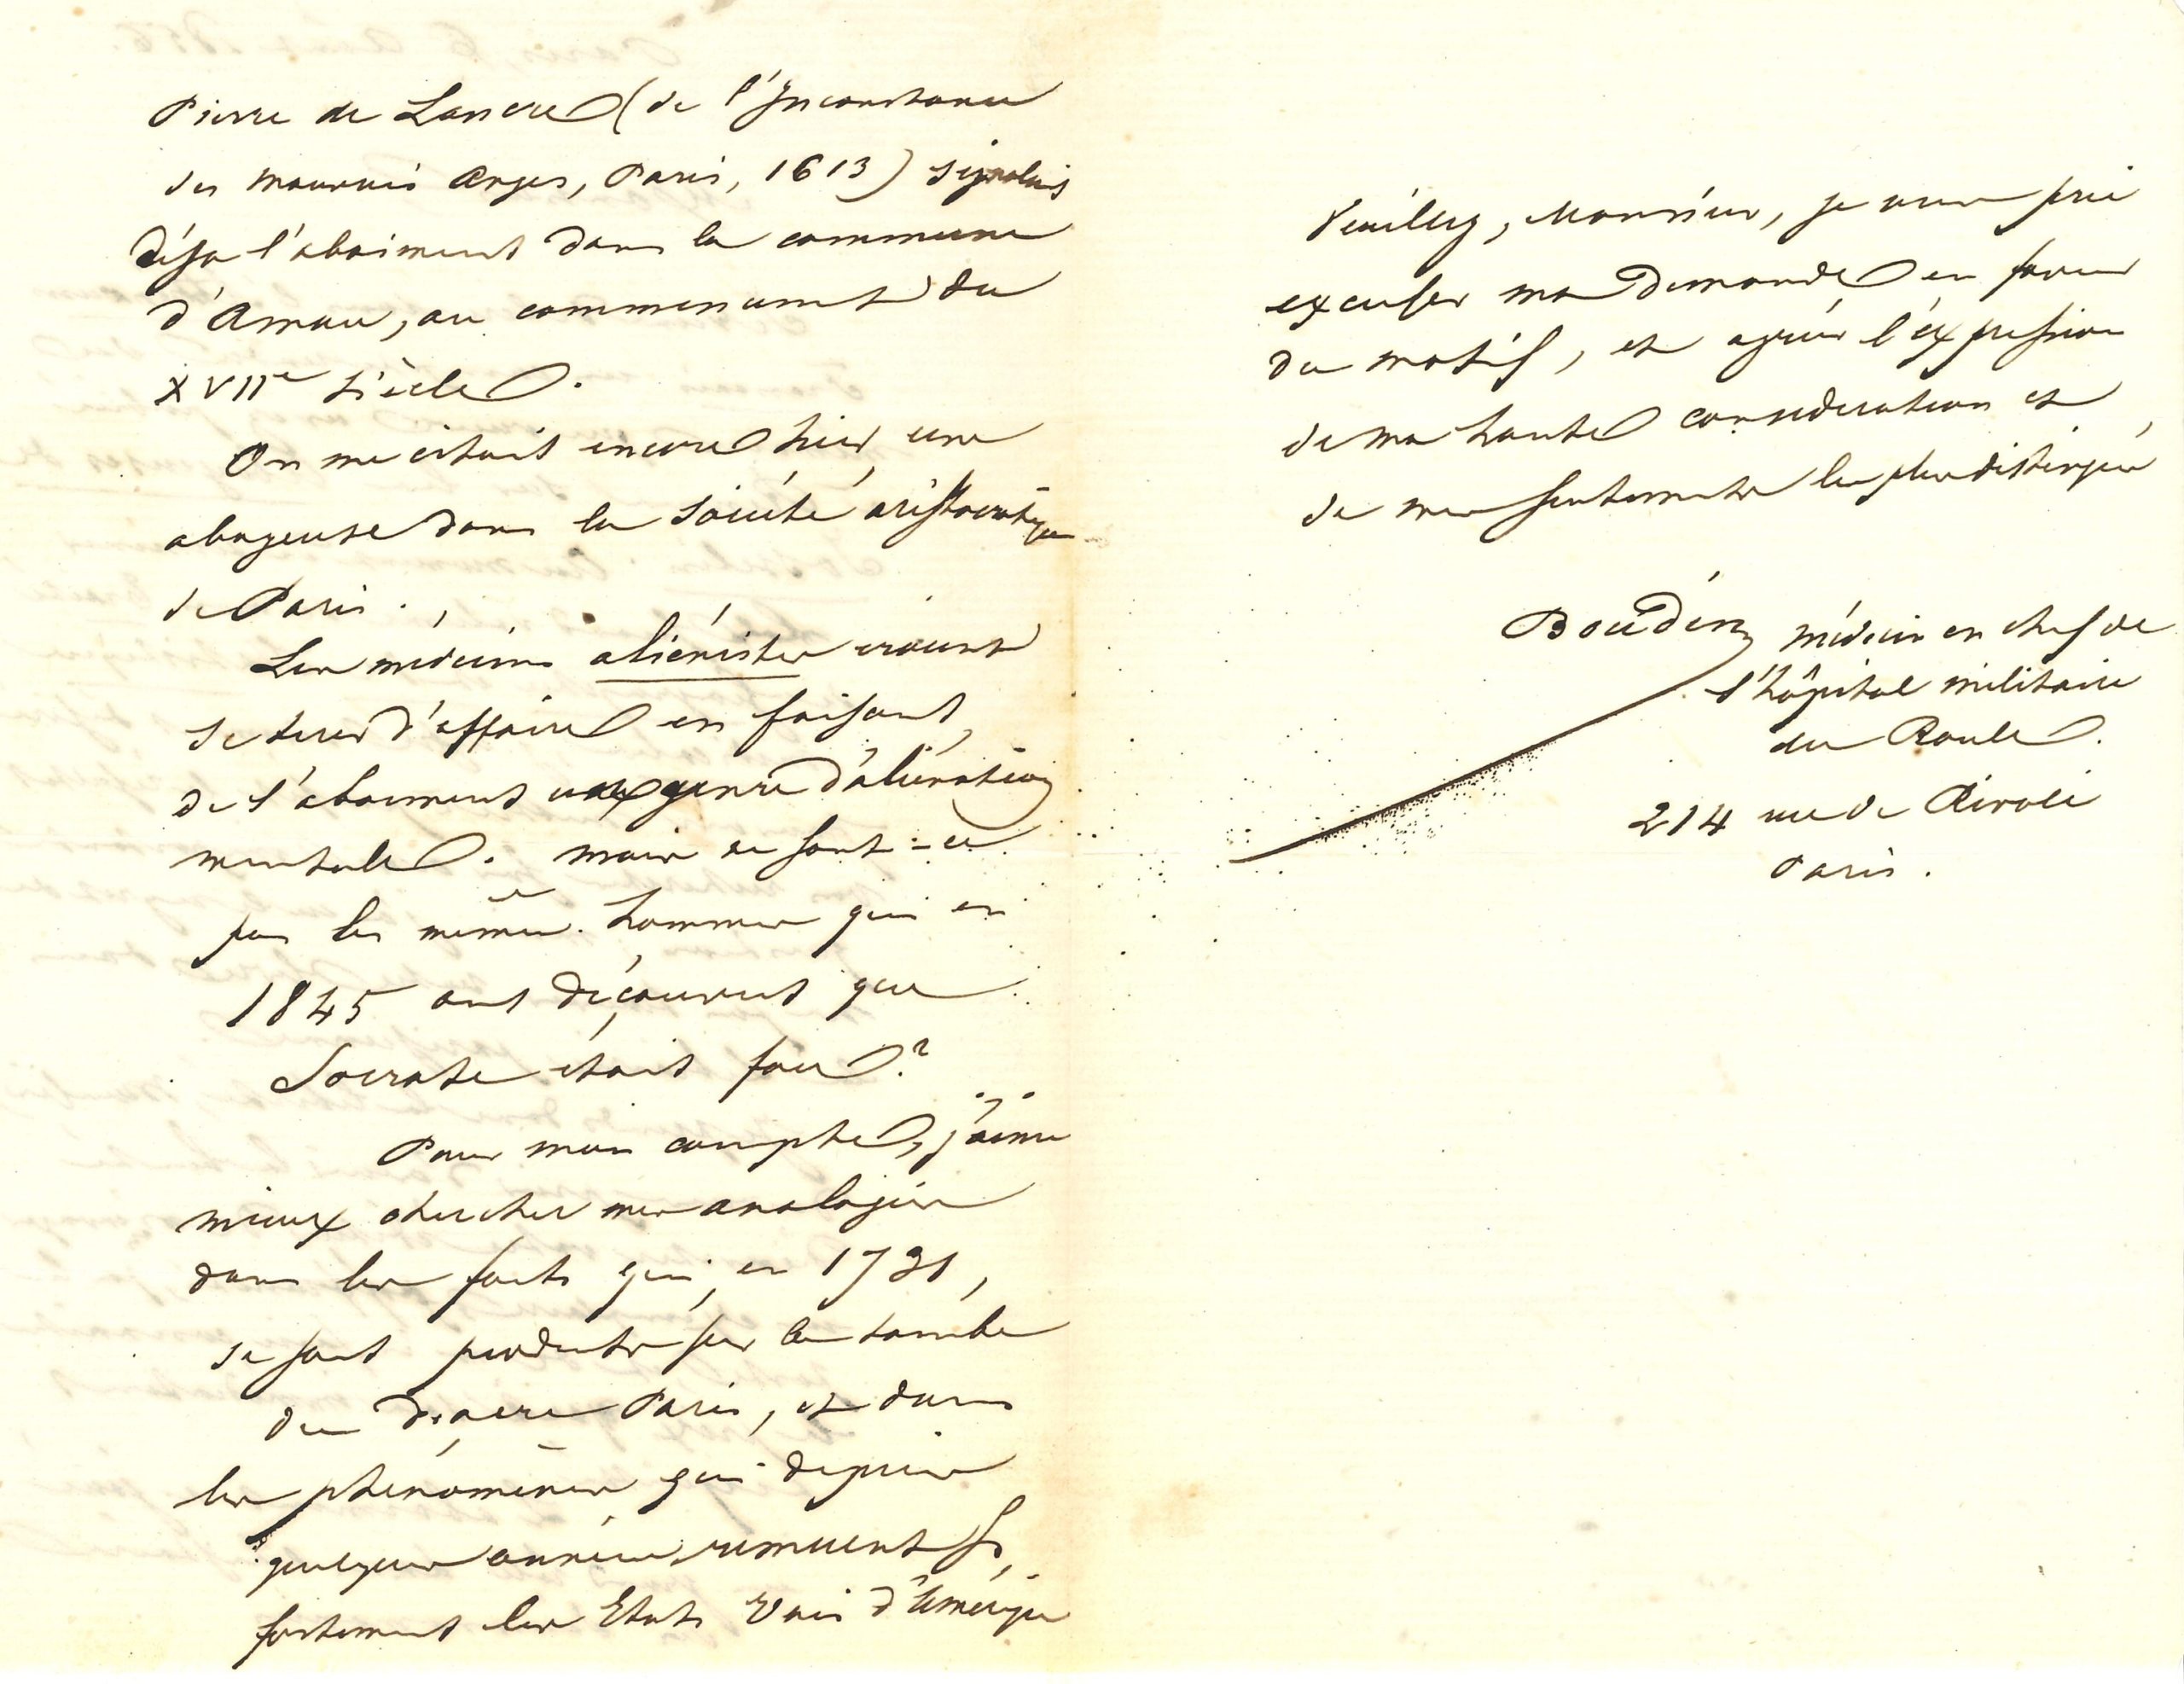 Pierre de Lancre (de l'Inconstance
des mauvais Anges, Paris, 1613) signalait
déja l'aboiement dans la commune
d'Amou, au commencement du
XVIIe siècle.
On me citait encore hier, une
aboyeuse dans la société aristocratique
de Paris.
Les médecins aliénistes croient
se tirer d'affaire en faisant
de l'aboiement un genre d'aliénation
mentale. mais ne sont-ce
pas les mêmes hommes qui en
1845 ont découvert que
Socrate était fou?
Pour mon compte, j'aime
mieux chercher mes analogies
dans les faits qui, en 1731,
se sont produits sur la tombe
du diacre Paris, et dans
les phénomènes qui depuis
quelques années remuent si
fortement les Etats Unis d'Amérique
Veuillez, Monsieur, je vous prie
excuser ma demande en faveur
du motif, et agréer l'expression
de ma haute considération et
de mes sentiments les plus distingués
Boudin, médecin en chef de
l'hôpital militaire
du Roule.
214 rue de Rivoli
Paris.